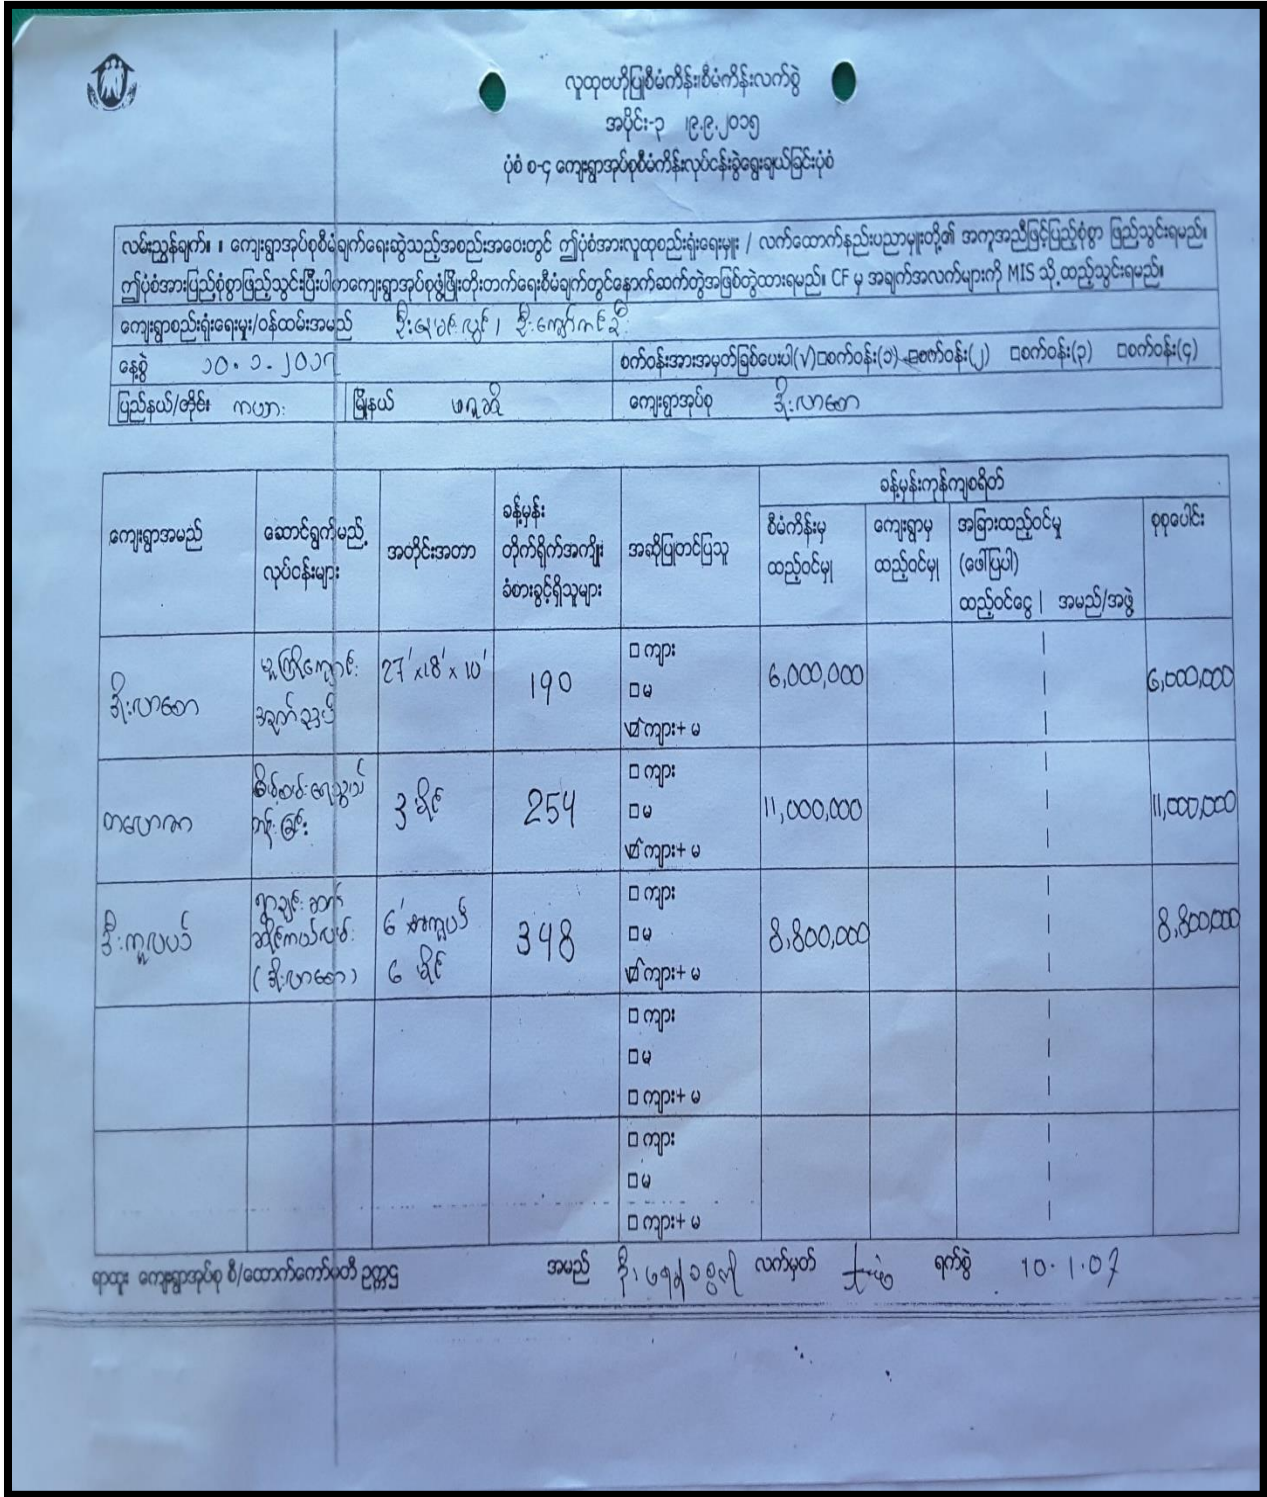 လူထုဗဟိုပြုစီမံကိန်း၊စီမံကိန်းလက်စွဲ
အပိုင်း-၃ ၊၉.၉.၂၀၁၅
ပုံစံ စ-၄ ကျေးရွာအုပ်စုစီမံကိန်းလုပ်ငန်းခွဲရွေးချယ်ခြင်းပုံစံ
လမ်းညွှန်ချက်။ ။ ကျေးရွာအုပ်စုစီမံချက်ရေးဆွဲသည့်အစည်းအဝေးတွင် ဤပုံစံအားလူထုစည်းရုံးရေးမှူး / လက်ထောက်နည်းပညာမှူးတို့၏ အကူအညီဖြင့်ပြည့်စုံစွာ ဖြည်သွင်းရမည်။
ဤပုံစံအားပြည်စုံစွာဖြည့်သွင်းပြီးပါကကျေးရွာအုပ်စုဖွံ့ဖြိုးတိုးတက်ရေးစီမံချက်တွင်နောက်ဆက်တွဲအဖြစ်တွဲထားရမည်။ CF မှ အချက်အလက်များကို MIS သို့ ထည့်သွင်းရမည်။
ကျေးရွာစည်းရုံးရေးမှူး/ဝန်ထမ်းအမည်
နေ့စွဲ ၁၀.၁.၂၀၁၇ စက်ဝန်းအားအမှတ်ခြစ်ပေးပါ(√)□စက်ဝန်း(၁) □စက်ဝန်း(၂) □စက်ဝန်း(၃) □စက်ဝန်း(၄)
ပြည်နယ်/တိုင်း ကယား မြို့နယ် ဖရူဆို ကျေးရွာအုပ်စု ဒိုးလာစော
ခန့်မှန်းကုန်ကျစရိတ်
ကျေးရွာအမည် ဆောင်ရွက်မည့် လုပ်ငန်းများ အတိုင်းအတာ ခန့်မှန်း တိုက်ရိုက်အကျိုး ခံစားခွင့်ရှိသူများ အဆိုပြုတင်ပြသူ စီမံကိန်းမှ ထည့်ဝင်မှု ကျေးရွာမှ ထည့်ဝင်မှု အခြားထည့်ဝင်မှု (ဖေါ်ပြပါ) ထည့်ဝင်ငွေ | အမည်/အဖွဲ့ စုစုပေါင်း
ဒိုးလာစော မူကြိုကျောင်း 27'x18'x10' 190 □ ကျား 6,000,000 6,000,000
□ မ
☑ ကျား+ မ
3 မိုင် 254 □ ကျား 11,000,000 11,000,000
□ မ
☑ ကျား+ မ
6' 6 မိုင် (ဒိုးလာစော) 348 □ ကျား 8,800,000 8,800,000
□ မ
☑ ကျား+ မ
□ ကျား
□ မ
□ ကျား+ မ
□ ကျား
□ မ
□ ကျား+ မ
ရာထူး ကျေးရွာအုပ်စု စီ/ထောက်ကော်မတီ ဥက္ကဋ္ဌ အမည် လက်မှတ် ရက်စွဲ 10.1.07